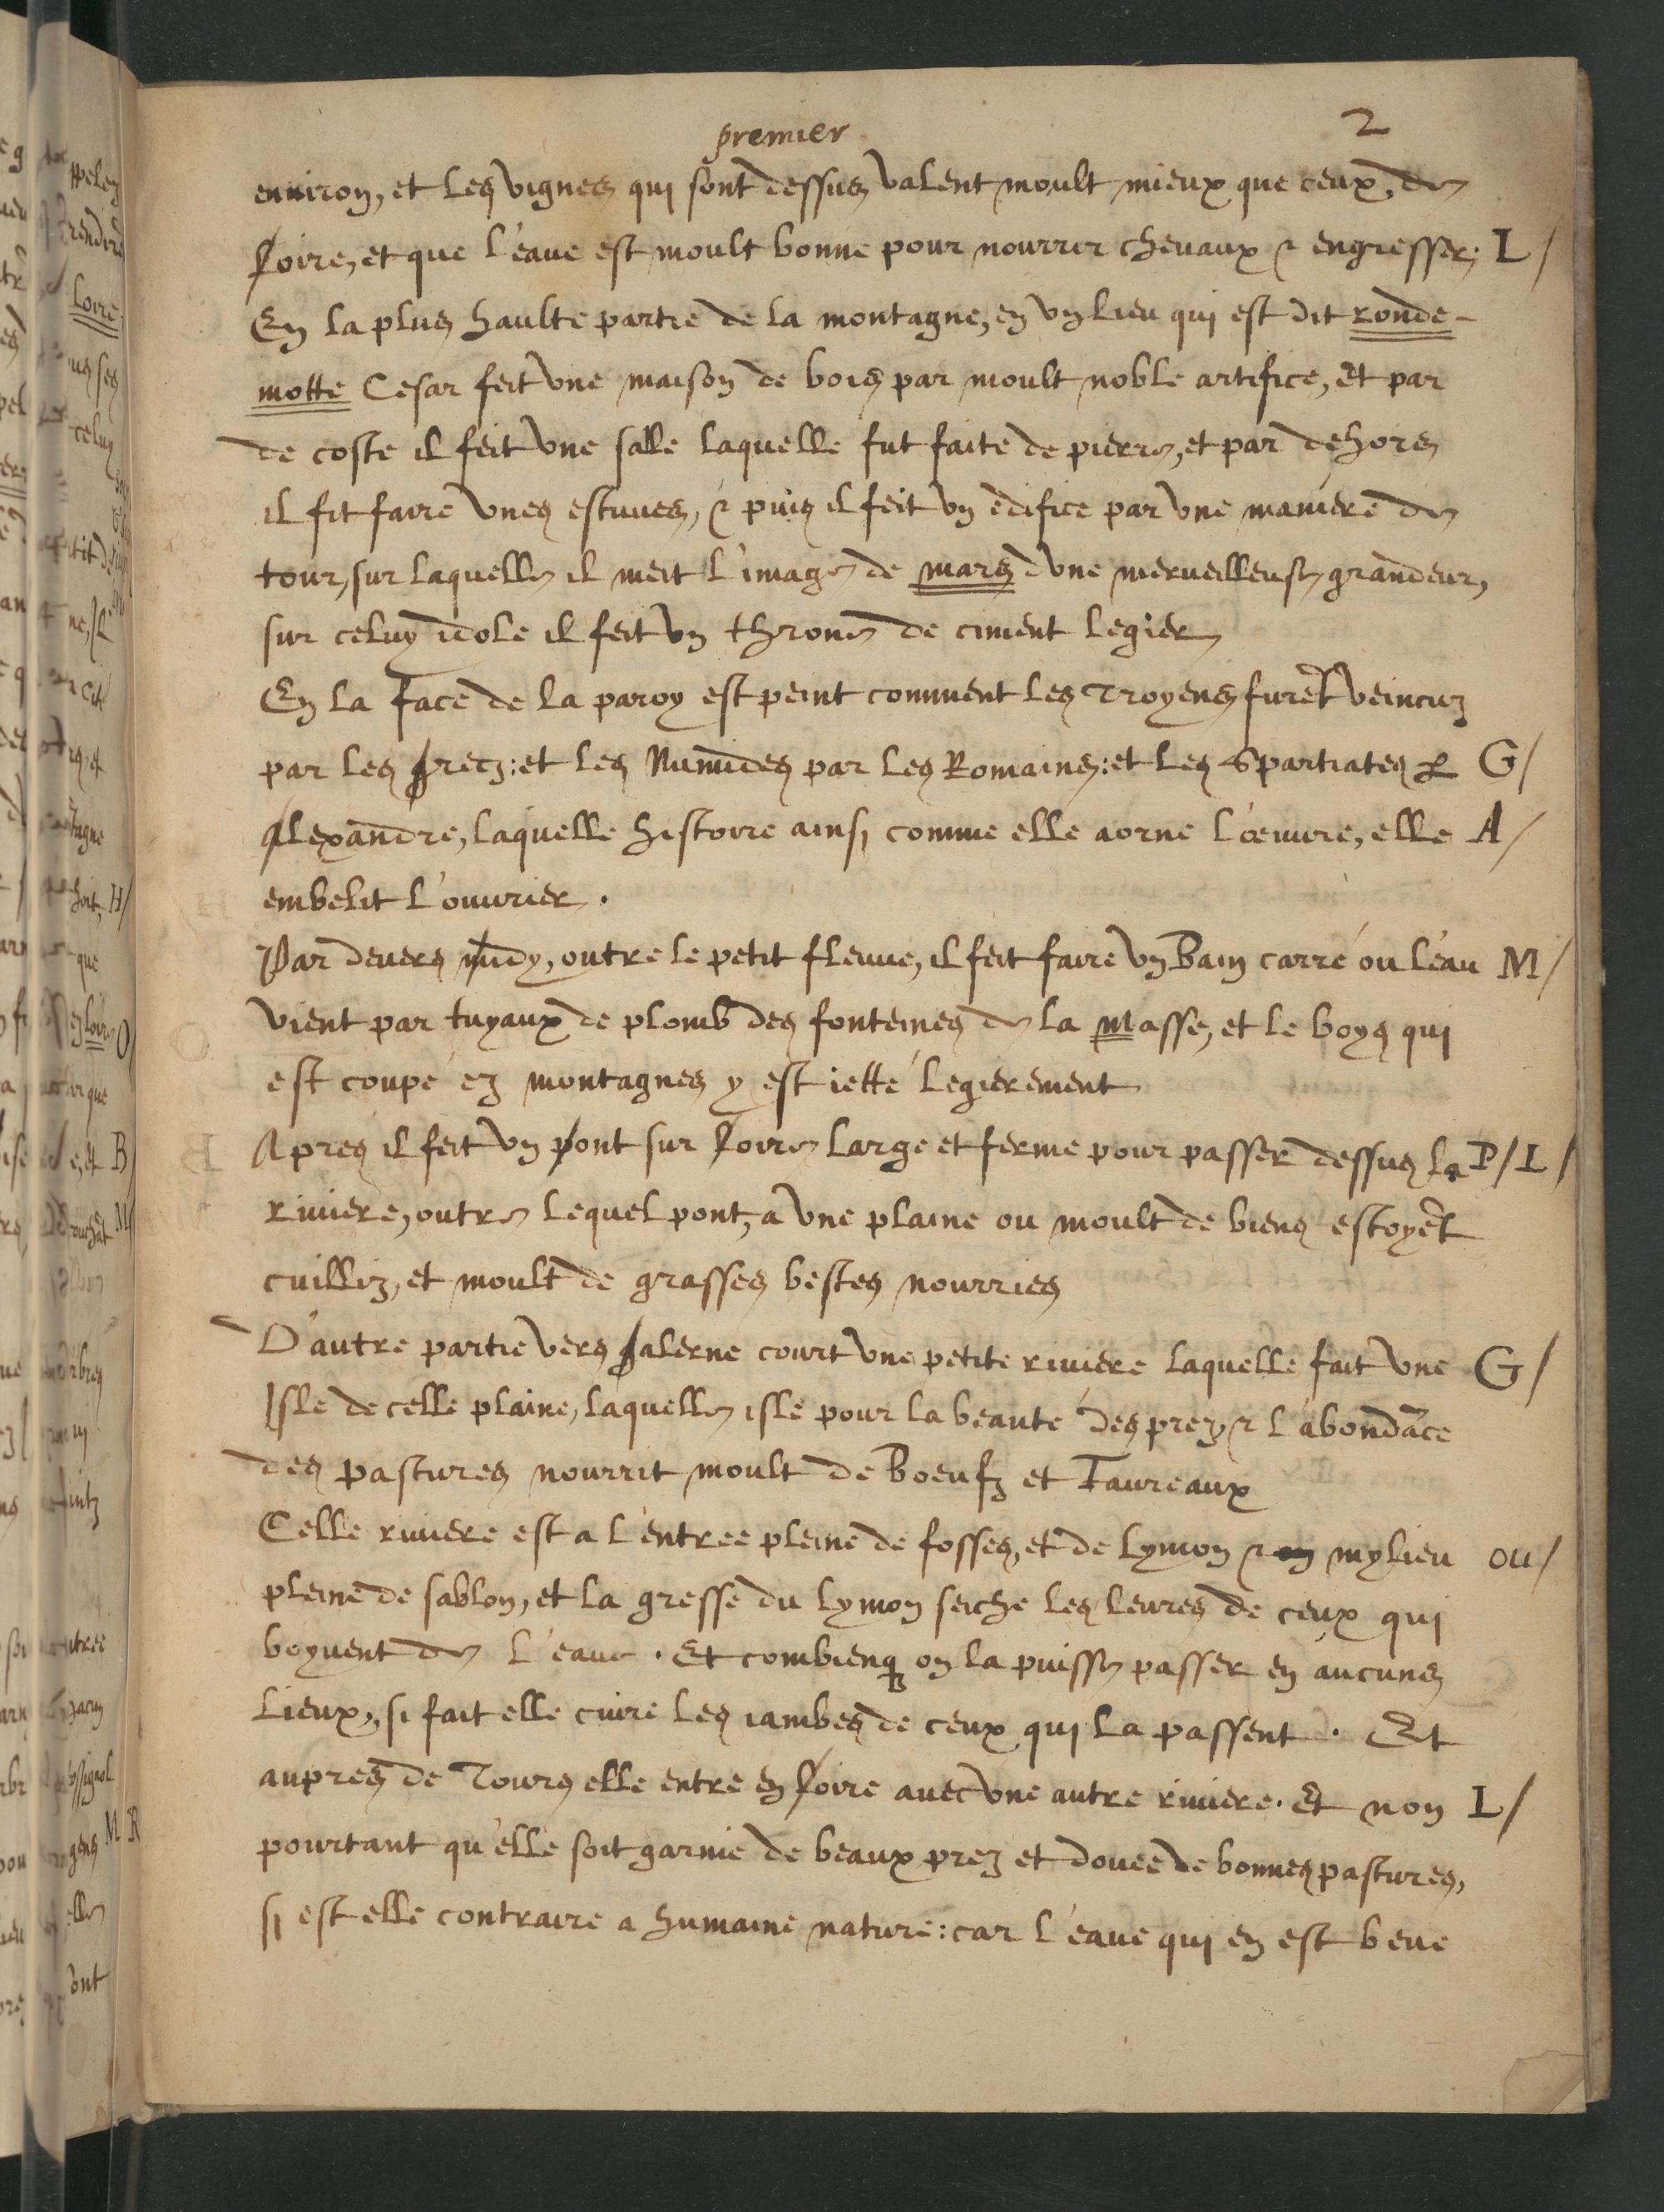 premier
2
enuiron, et les vignes qui sont dessus valent moult mieux que ceux de
loire, et que l'eaue est moult bonne pour nourrir cheuaux & engresser; L/
En la plus haulte partie de la montagne, en vn lieu qui est dit ronde-
motte Cesar feit vne maison de bois par moult noble artifice, et par
de coste il feit vne salle laquelle fut faite de pierre, et par dehors
il fit faire vnes estuues, & puis il feit vn edifice par vne maniere de
tour, sur laquelle il meit l'image de mars d'vne merueilleuse grandeur,
sur celuy idole il feit vn throne de ciment legier
En la face de la paroy est peint comment les Troyens furēt veincuz
par les grecz: et les Numides par les Romains: et les Spartiates & G/
alexandre, laquelle histoire ainsi comme elle aorne l'œuure, elle A/
embelit l'ouurier.
Par deuers midy, outre le petit fleuue, il feit faire vn Bain carré ou l'eau M/
vient par tuyaux de plomb des fonteines de la Masse, et le boys qui
est coupé ez montagnes y est ietté legierement
Apres il feit vn pont sur loire large et ferme pour passer dessus la P/ L/
riuiere, outre lequel pont, a vne plaine ou moult de biens estoyēt
cuilliz, et moult de grasses bestes nourries
D'autre partie vers galerne court vne petite riuiere laquelle fait vne G/
Isle de celle plaine, laquelle isle pour la beauté des prez & l'abondāce
des pastures nourrit moult de Boeufz et Taureaux
Celle riuiere est a l'entree pleine de fosses, et de lymon & en mylieu ou/
pleine de sablon, et la gresse du lymon seiche les leures de ceux qui
boyuent de l'eaue. Et combienq on la puisse passer en aucuns
lieux, si fait elle cuire les iambes de ceux qui la passent. Et
aupres de Tours elle entre en loire auec vne autre riuiere. Et non L/
pourtant qu'elle soit garnie de beaux prez et douee de bonnes pastures,
si est elle contraire a humaine nature: car l'eaue qui en est beue